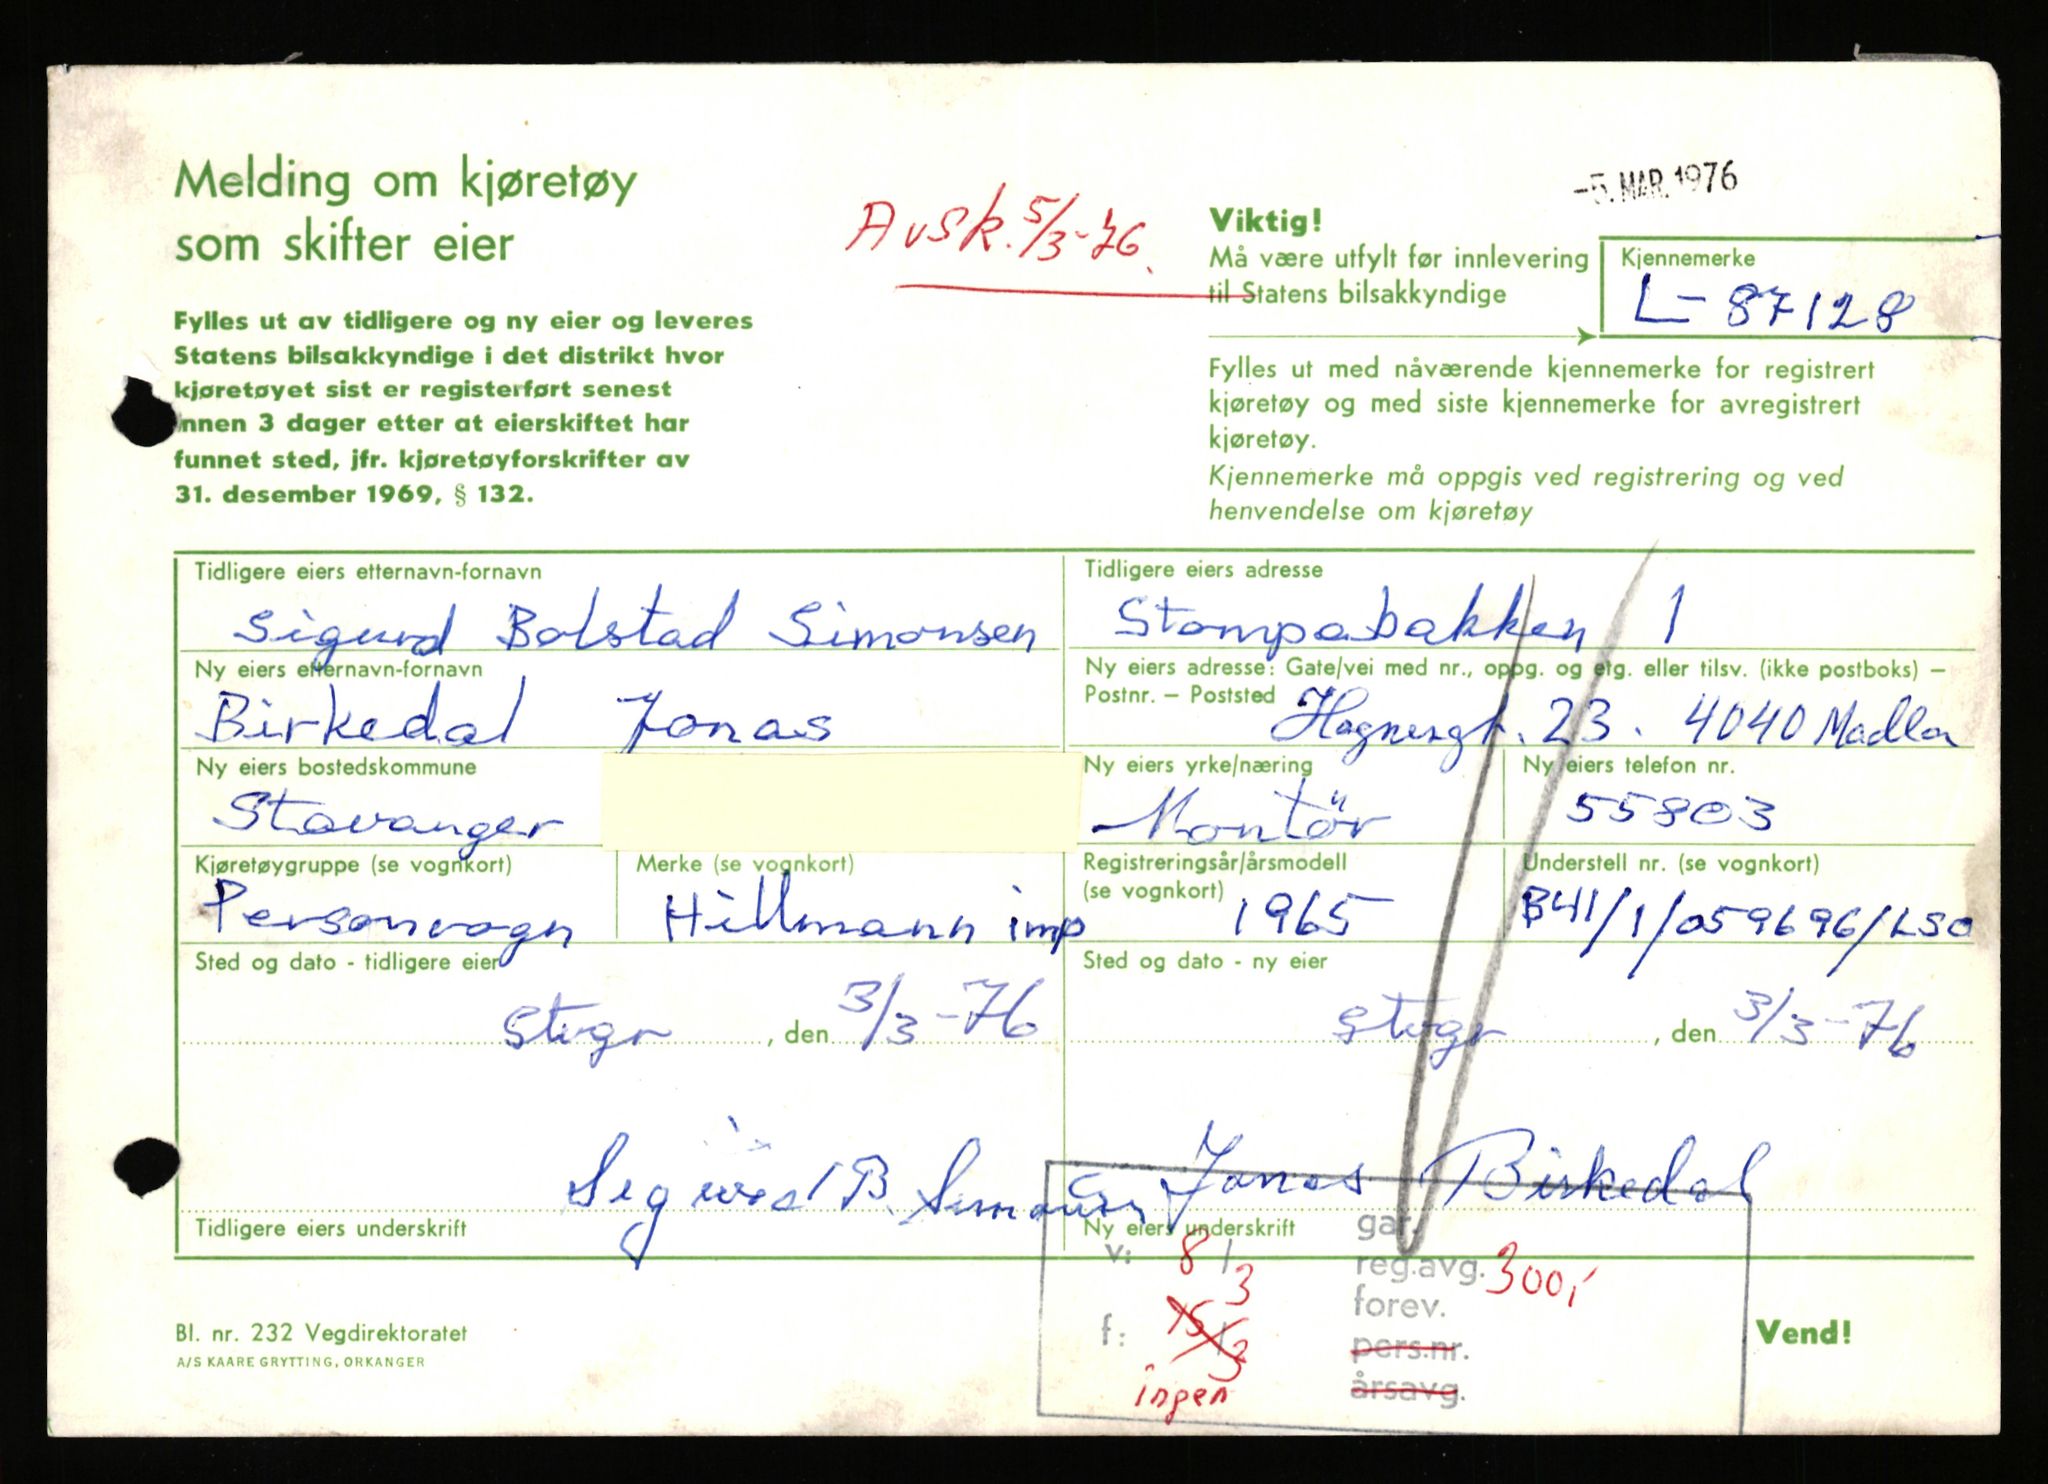 -5. MAR. 1976
Melding om kjøretøy
som skifter eier
Avsk. 5/3-76.
Fylles ut av tidligere og ny eier og leveres
Statens bilsakkyndige i det distrikt hvor
kjøretøyet sist er registerført senest
innen 3 dager etter at eierskiftet har
funnet sted, jfr. kjøretøyforskrifter av
31. desember 1969, § 132.
Viktig!
Må være utfylt før innlevering
til Statens bilsakkyndige
Kjennemerke
L-87128
Fylles ut med nåværende kjennemerke for registrert
kjøretøy og med siste kjennemerke for avregistrert
kjøretøy.
Kjennemerke må oppgis ved registrering og ved
henvendelse om kjøretøy
Tidligere eiers etternavn-fornavn
Sigurd Bolstad Simonsen
Tidligere eiers adresse
Stompabakken 1
Ny eiers etternavn-fornavn
Birkedal Jonas
Ny eiers adresse: Gate/vei med nr., oppg. og etg. eller tilsv. (ikke postboks) –
Postnr. – Poststed
23. 4040 Madla
Ny eiers bostedskommune
Stavanger
Ny eiers yrke/næring
Montör
Ny eiers telefon nr.
55803
Kjøretøygruppe (se vognkort)
Personvogn
Merke (se vognkort)
Hillmann imp
Registreringsår/årsmodell
(se vognkort)
1965
Understell nr. (se vognkort)
B41/1/059696/LSO
Sted og dato - tidligere eier
Stvgr, den 3/3-76
Sted og dato - ny eier
Stvgr, den 3/3-76
Sigurd B. Simonsen
Tidligere eiers underskrift
Jonas Birkedal
Ny eiers underskrift
gar.
v: 8/3
reg.avg. 300,-
forev.
f: 15/3
pers.nr.
ingen
årsavg.
Bl. nr. 232 Vegdirektoratet
A/S KAARE GRYTTING, ORKANGER
Vend!